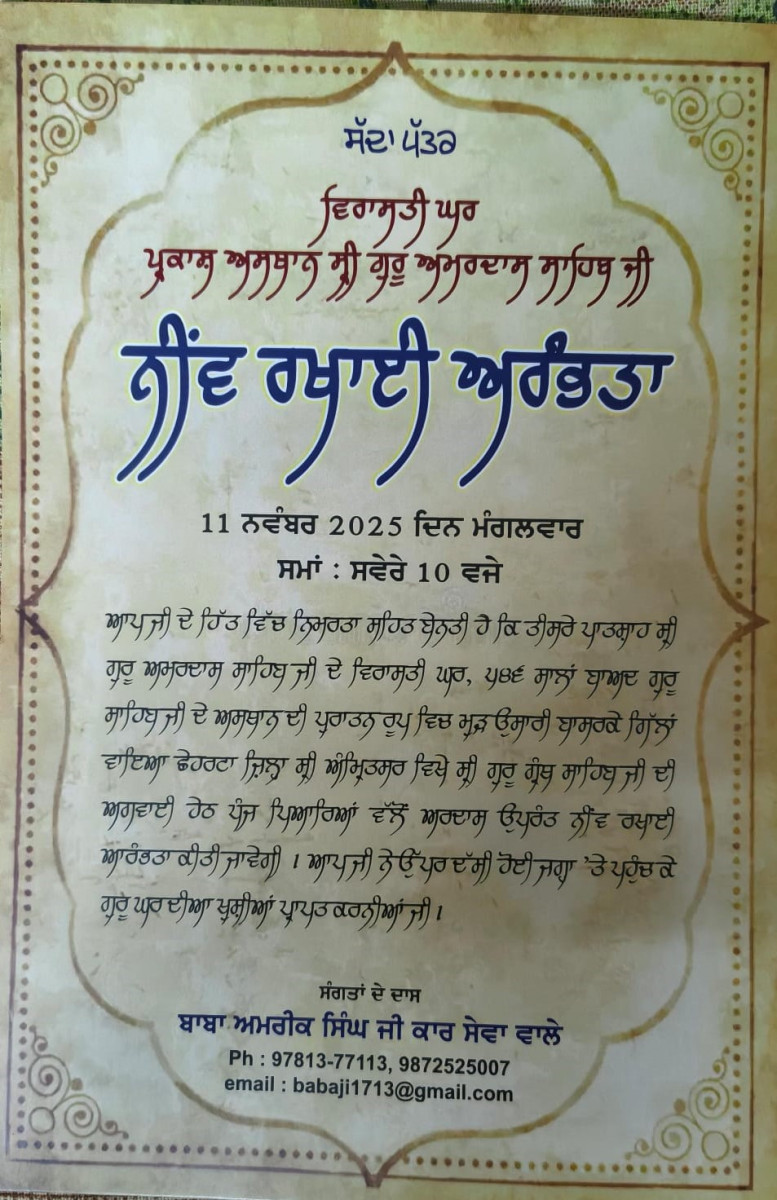 ਸੱਦਾ ਪੱਤਰ
ਵਿਰਾਸਤੀ ਘਰ
ਪ੍ਰਕਾਸ਼ ਅਸਥਾਨ ਸ੍ਰੀ ਗੁਰੂ ਅਮਰਦਾਸ ਸਾਹਿਬ ਜੀ
ਨੀਂਵ ਰਖਾਈ ਅਰੰਭਤਾ
11 ਨਵੰਬਰ 2025 ਦਿਨ ਮੰਗਲਵਾਰ
ਸਮਾਂ : ਸਵੇਰੇ 10 ਵਜੇ
ਆਪ ਜੀ ਦੇ ਹਿੱਤ ਵਿੱਚ ਨਿਮਰਤਾ ਸਹਿਤ ਬੇਨਤੀ ਹੈ ਕਿ ਤੀਸਰੇ ਪਾਤਸ਼ਾਹ ਸ੍ਰੀ
ਗੁਰੂ ਅਮਰਦਾਸ ਸਾਹਿਬ ਜੀ ਦੇ ਵਿਰਾਸਤੀ ਘਰ, ੫੪੬ ਸਾਲਾਂ ਬਾਅਦ ਗੁਰੂ
ਸਾਹਿਬ ਜੀ ਦੇ ਅਸਥਾਨ ਦੀ ਪੁਰਾਤਨ ਰੂਪ ਵਿਚ ਮੁੜ ਉਸਾਰੀ ਬਾਸਰਕੇ ਗਿੱਲਾਂ
ਵਾਇਆ ਛੇਹਰਟਾ ਜ਼ਿਲ੍ਹਾ ਸ੍ਰੀ ਅੰਮ੍ਰਿਤਸਰ ਵਿਖੇ ਸ੍ਰੀ ਗੁਰੂ ਗ੍ਰੰਥ ਸਾਹਿਬ ਜੀ ਦੀ
ਅਗਵਾਈ ਹੇਠ ਪੰਜ ਪਿਆਰਿਆਂ ਵੱਲੋਂ ਅਰਦਾਸ ਉਪਰੰਤ ਨੀਂਵ ਰਖਾਈ
ਆਰੰਭਤਾ ਕੀਤੀ ਜਾਵੇਗੀ । ਆਪ ਜੀ ਨੇ ਉੱਪਰ ਦੱਸੀ ਹੋਈ ਜਗ੍ਹਾ 'ਤੇ ਪਹੁੰਚ ਕੇ
ਗੁਰੂ ਘਰ ਦੀਆ ਖੁਸ਼ੀਆਂ ਪ੍ਰਾਪਤ ਕਰਨੀਆਂ ਜੀ ।
ਸੰਗਤਾਂ ਦੇ ਦਾਸ
ਬਾਬਾ ਅਮਰੀਕ ਸਿੰਘ ਜੀ ਕਾਰ ਸੇਵਾ ਵਾਲੇ
Ph : 97813-77113, 9872525007
email : babaji1713@gmail.com